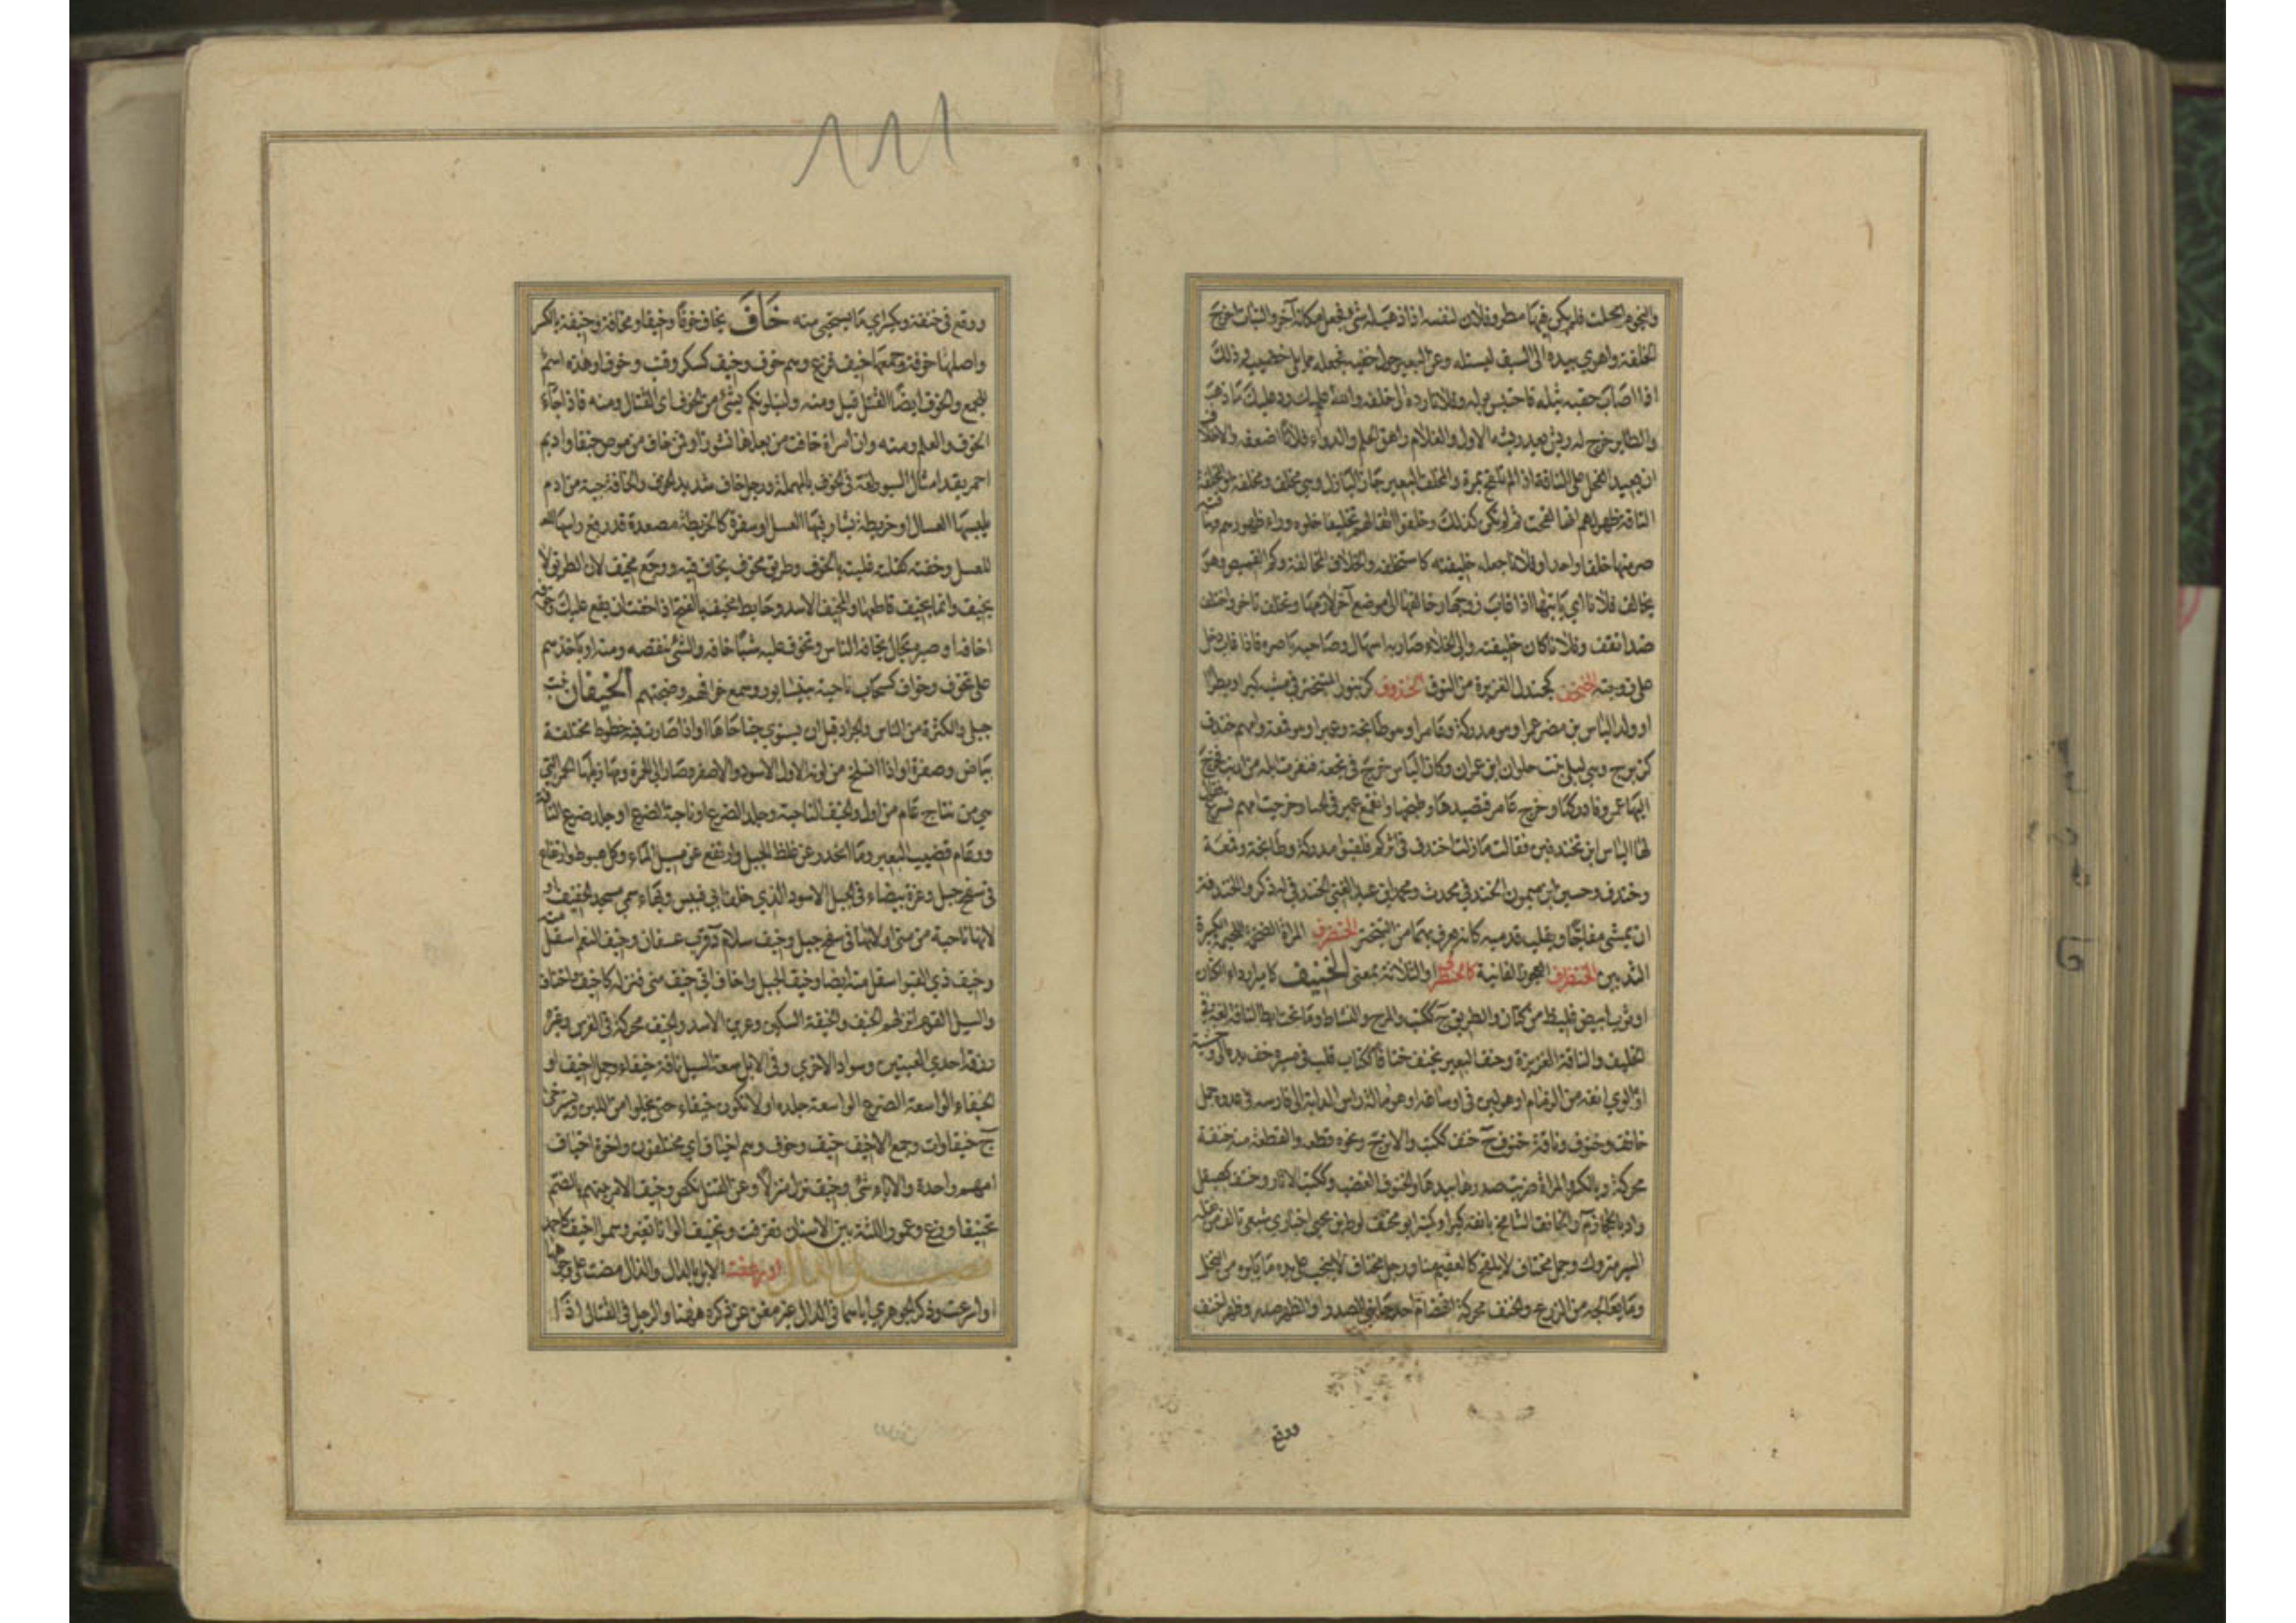 والنجوم امحلت فلم يكن فيها مطر وفلان لنفسه اذا ذهب له شئ فجعل مكانه آخر والنبات اخرج
الخلفة واهوي بيده الى السيف ليستله وعن البعير حول حقبه فجعله مما يلي خصييه وذلك
اذا اصاب حقبه ثيله فاحتبس بوله وفلانا رده الى خلفه والله عليك رد عليك ما ذهب
والطاير خرج له ريش بعد ريشه الاول والغلام راهق الحلم والدواء فلانا اضعفه والاخلاف
ان يعيد الفحل على الناقة اذا لم تلقح بمرة والمخلف البعير جاز البازل وهي مخلف ومخلفة او المخلفة
الناقة ظهر لهم انها لقحت ثم لم تكن كذلك وخلفوا اثقالهم تخليفا خلوه وراء ظهورهم وبناقته
صر منها خلفا واحدا وفلانا جعله خليفته كاستخلفه والخلاف المخالفة وكم القميص وهو
يخالف فلانة اي ياتيها اذا غاب زوجها وخالفها الى موضع آخر لازمها وتخلف تاخر واختلف
ضد اتفق وفلانا كان خليفته والى الخلاء صار به اسهال وصاحبه باصره فاذا غاب دخل
على زوجته الخنجف كجندل الغزيرة من النوق الخندوف كزنبور المتبختر في مشيه كبرا وبطرا
او ولد الياس بن مضر عمرا وهو مدركة وعامرا وهو طابخة وعميرا وهو قمعة وامهم خندف
كزبرج وهي ليلى بنت حلوان ابن عمران وكان الياس خرج في نجعة فنفرت ابله من ارنب فخرج
اليها عمرو فادركها وخرج عامر فتصيدها وطبخها وانقمع عمير في الخباء وخرجت امهم تسرع فقال
لها الياس اين تخندفين فقالت ما زلت اخندف في اثركم فلقبوا مدركة وطابخة وقمعة
وخندف وحسين بن ميمون الخندفي محدث ومحمد بن عبد الغني الخندفي له ذكر والخندفة
ان يمشي مفاجا ويقلب قدميه كانه يغرف بهما من التبختر الخنضرف المراة الضخمة اللحيمة الكبيرة
الثديين الخنظرف العجوز الفانية كالخنطرف او الثلاثة بمعنى الخنيف كامير اردا الكتان
او ثوب ابيض غليظ من كتان والطريق ج ككتب والمرح والنشاط وما تحت ابط الناقة لغة في
الخليف والناقة الغزيرة وخنف البعير يخنف خنافا ككتاب قلب في سيره خف يده الى وحشيه
او لوى انفه من الزمام او هو لين في ارساغه او هو امالة راس الدابة الى فارسه في عدوه جمل
خانف وخنوف وناقة خنوف ج خنف ككتب والاترج ونحوه قطعه والقطعة منه خنفة
محركة وبالكسر والمراة ضربت صدرها بيدها والخنوف الغضب وككتب الاثار وخنف كصيقل
واد بالحجاز م والخانف الشامخ بانفه كبرا وكمنبر ابو مخنف لوط بن يحيى اخباري شيعي تالف
السير متروك وجمل مخناف لا يلقح كالعقيم منا ورجل مخناف لا ينجب على يده ما يابره من النخل
وما يعالجه من الزرع والخنف محركة انهضام احد جانبي الصدر او الظهر صدر وظهر اخنف
ووقع
ووقع في خنفة وبكسر اي ما يستحيى منه خاف يخاف خوفا وخيفا ومخافة وخيفة بالكسر
واصلها خوفة وجمعها خيف فزع وهم خوف وخيف كسكر وقنب وخوف او هذه اسم
للجمع والخوف ايضا القتل قيل ومنه ولنبلونكم بشئ من الخوف اى القتال ومنه فاذا جاء
الخوف والعلم ومنه وان امراة خافت من بعلها نشوزا وفمن خاف من موص جنفا واديم
احمر يقد امثال السيور لغة في الحوف بالمهملة ورجل خاف شديد الخوف والخافة جبة من ادم
يلبسها العسال او خريطة يشتار فيها العسل او سفرة كالخريطة مصعدة قد رفع راسها
للعسل وخفته كقلته غلبته بالخوف وطريق مخوف يخاف فيه ووجع مخيف لان الطريق لا
يخيف وانما يخيف قاطعها والمخيف الاسد وحايط مخيف بالضم اذا خفت ان يقع عليك وخوفه
اخافه او صيره بحال يخافه الناس وتخوف عليه شيا خافه والشئ تنقصه ومنه او ياخذهم
على تخوف وخواف كسحاب ناحية بنيسابور وسمع خوافهم وضجتهم الخيفان نبت
جبلي والكثرة من الناس والجراد قبل ان يستوي جناحاها او اذا صارت فيه خطوط مختلفة
بياض وصفرة او اذا انسلخ من لونه الاول الاسود والاصفر وصار الى الحمرة ومهازيلها الحمر التي
هي من نتاج عام من اول والخيف الناحية وجلد الضرع او ناحية الضرع او جلد ضرع الناقة
ووعاء قضيب البعير وما انحدر عن غلظ الجبل وارتفع عن مسيل الماء وكل هبوط وارتقاء
في سفح جبل وغرة بيضاء في الجبل الاسود الذي خلف ابي قبيس وبها سمي مسجد الخيف او
لانها ناحية من منى او لانها في سفح جبل وخيف سلام د قرب عسفان وخيف النعم اسفل منه
وخيف ذي القبر اسفل منه ايضا وخيف الجبل واخاف اتى خيف منى فنزله كاخيف واختاف
والسيل القوم انزلهم الخيف والخيفة السكين وعرين الاسد والخيف محركة في الفرس وغيره
زرقة احدي العينين وسواد الاخري وفي الابل سعة الثيل ناقة خيفاء وجمل اخيف او
الخيفاء الواسعة الضرع الواسعة جلده او لا تكون خيفاء حتى يخلوا من اللبن ويسترخي
ج خيفاوات وجمع الاخيف خيف وخوف وهم اخياف اي مختلفون واخوة اخياف
امهم واحدة والآباء شتى وخيف نزل منزلا وعن القتال نكص وخيف الامر بينهم بالضم
تخييفا وزع وعمور اللثة بين الاسنان تفرقت وتخيف الوانا تغير وسموا اخيف كاحمد
فصل الدال ادرعفت الابل بالدال والذال مضت على وجوهها
او اسرعت وذكر الجوهري اياها في الدال غير مغن عن ذكره ههنا والرجل في القتال اذا